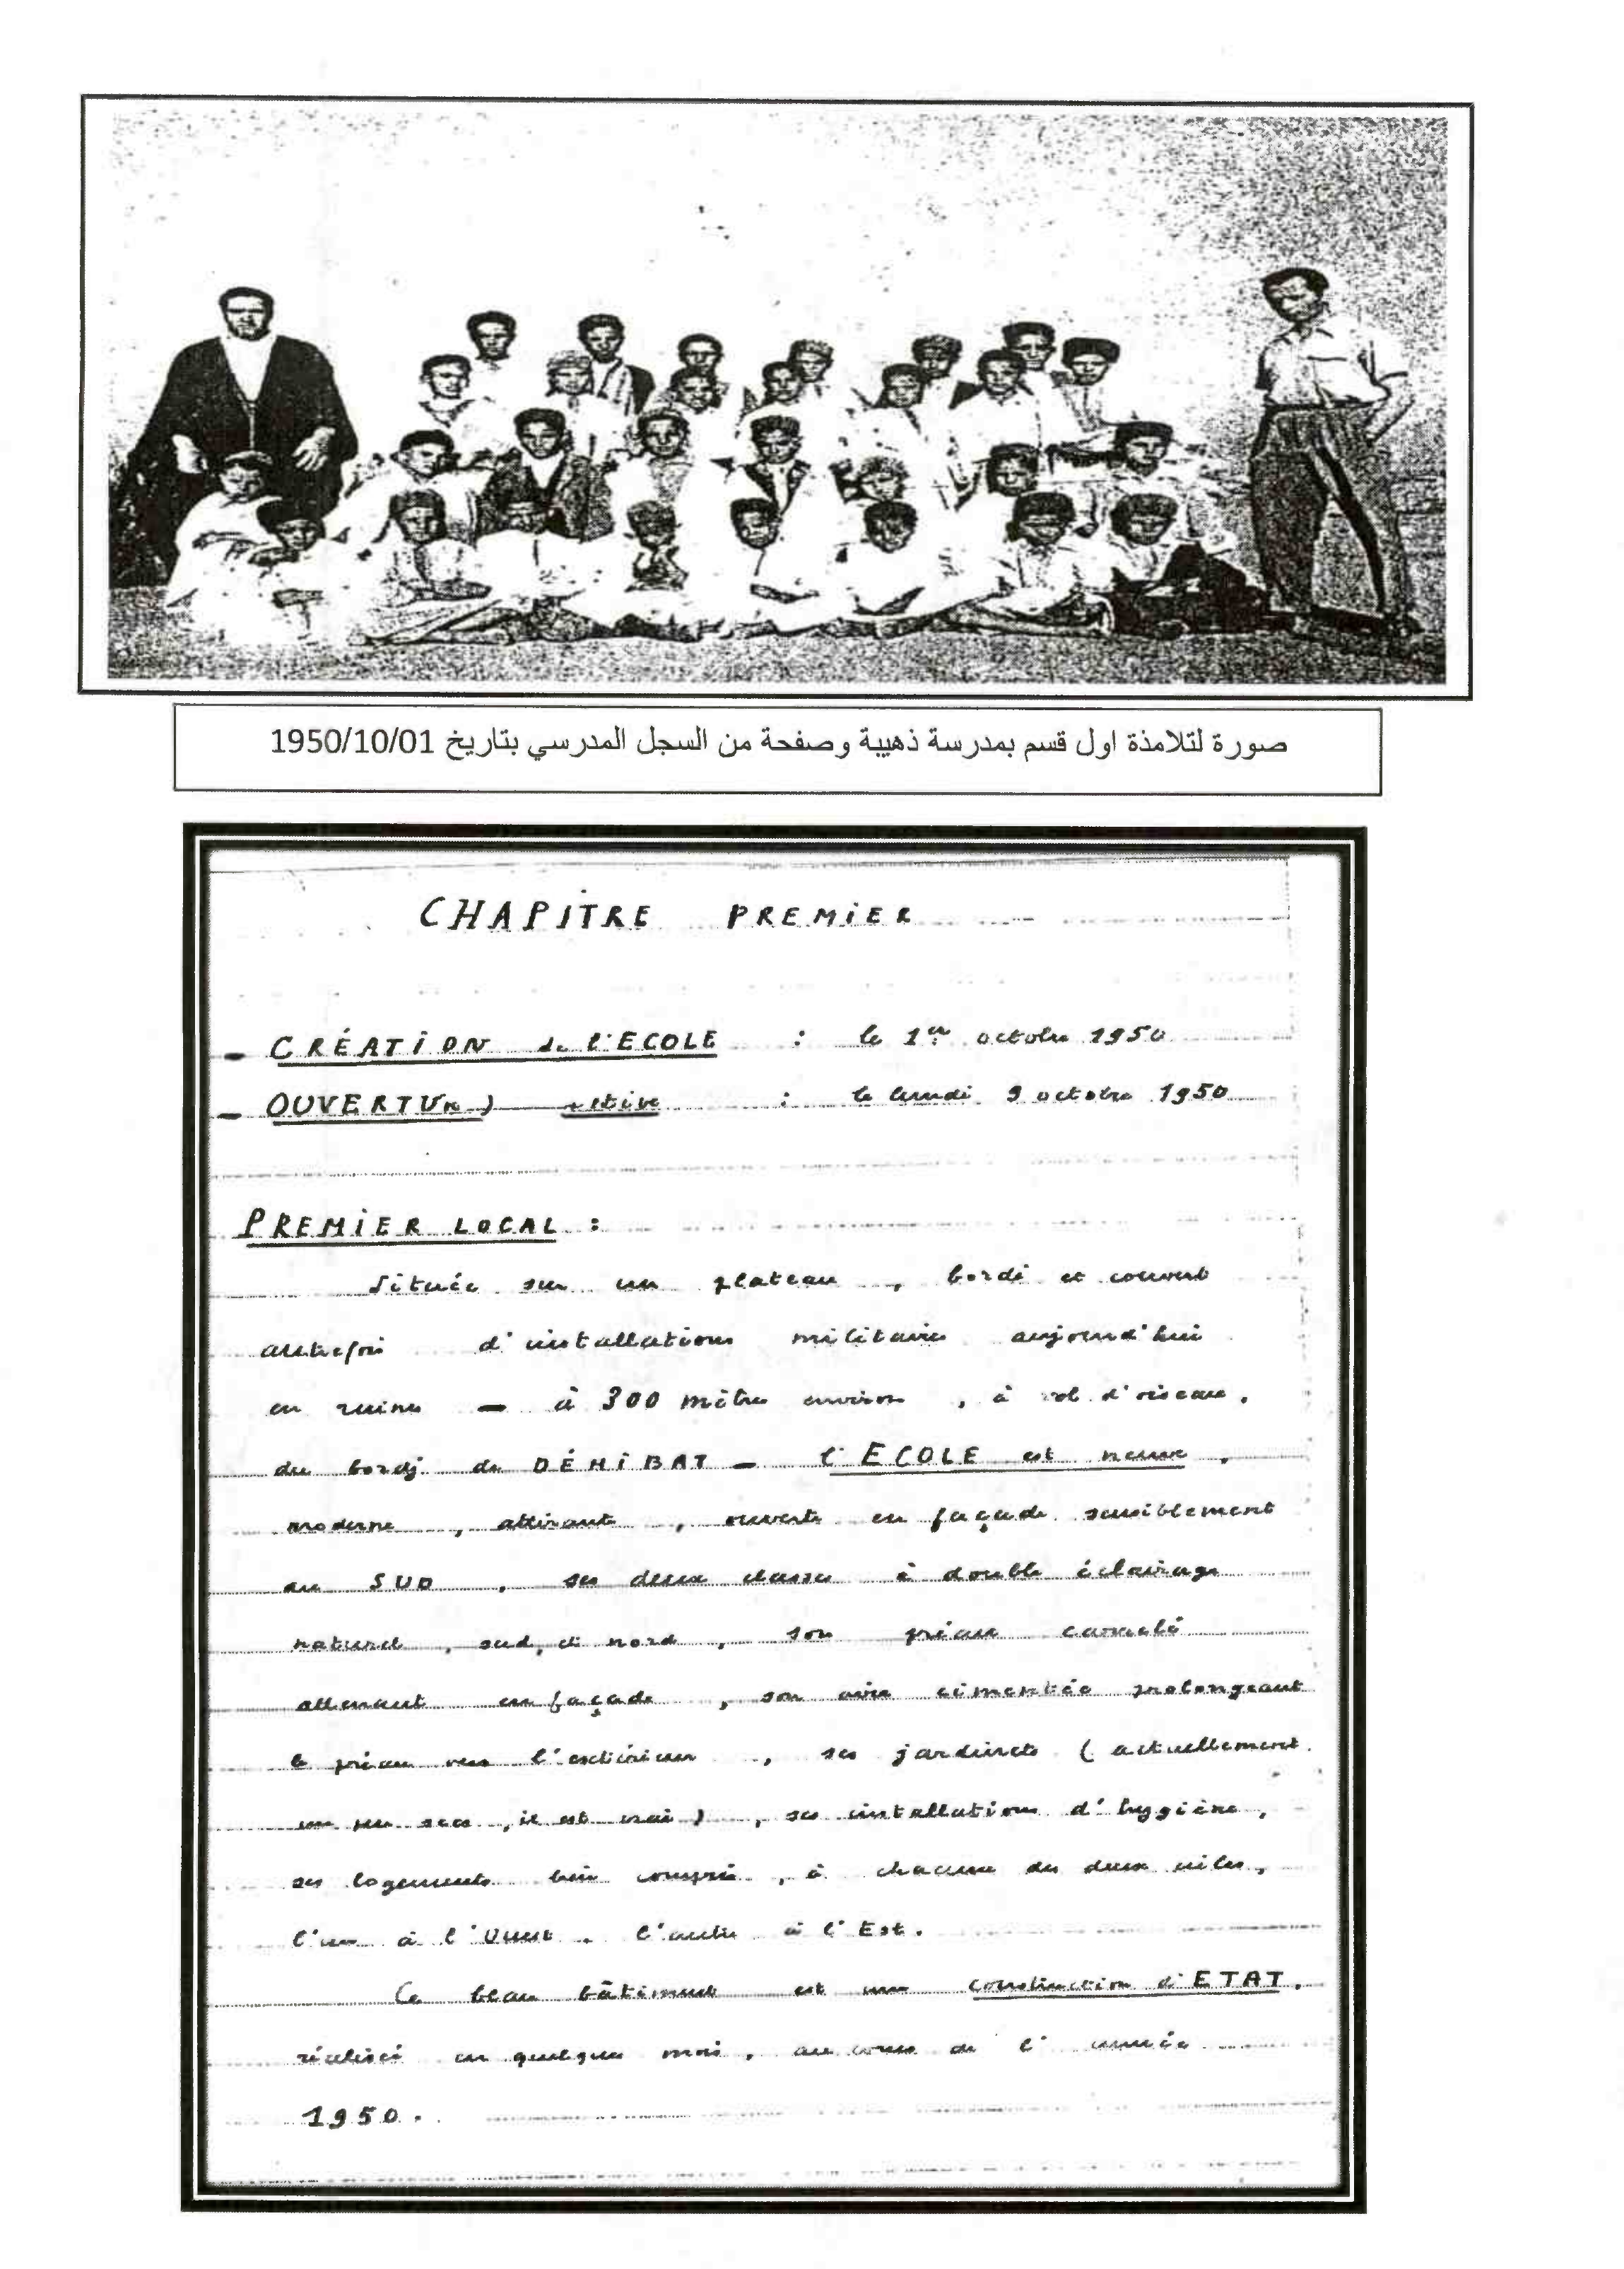 صورة لتلامذة اول قسم بمدرسة ذهيبة وصفحة من السجل المدرسي بتاريخ 1950/10/01
CHAPITRE PREMIER
- CRÉATION de l'ECOLE : le 1er octobre 1950
- OUVERTURE : le lundi 9 octobre 1950
PREMIER LOCAL :
Située sur un plateau, bordé et couvert
autrefois d'installations militaires aujourd'hui
en ruines - à 300 mètres environ, à vol d'oiseau,
du bordj de DÉHIBAT - l'ECOLE est neuve,
moderne, attirante, ouverte en façade sensiblement
au SUD, ses deux classes à double éclairage
naturel, sud, et nord, son préau carrelé
attenant en façade, son aire cimentée prolongeant
le préau vers l'extérieur, ses jardinets (actuellement
un peu secs, il est vrai), ses installations d'hygiène,
ses logements bien compris, à chacune des deux ailes,
l'un à l'Ouest, l'autre à l'Est.
Ce beau bâtiment est une construction d'ETAT,
réalisée en quelques mois, au cours de l'année
1950.